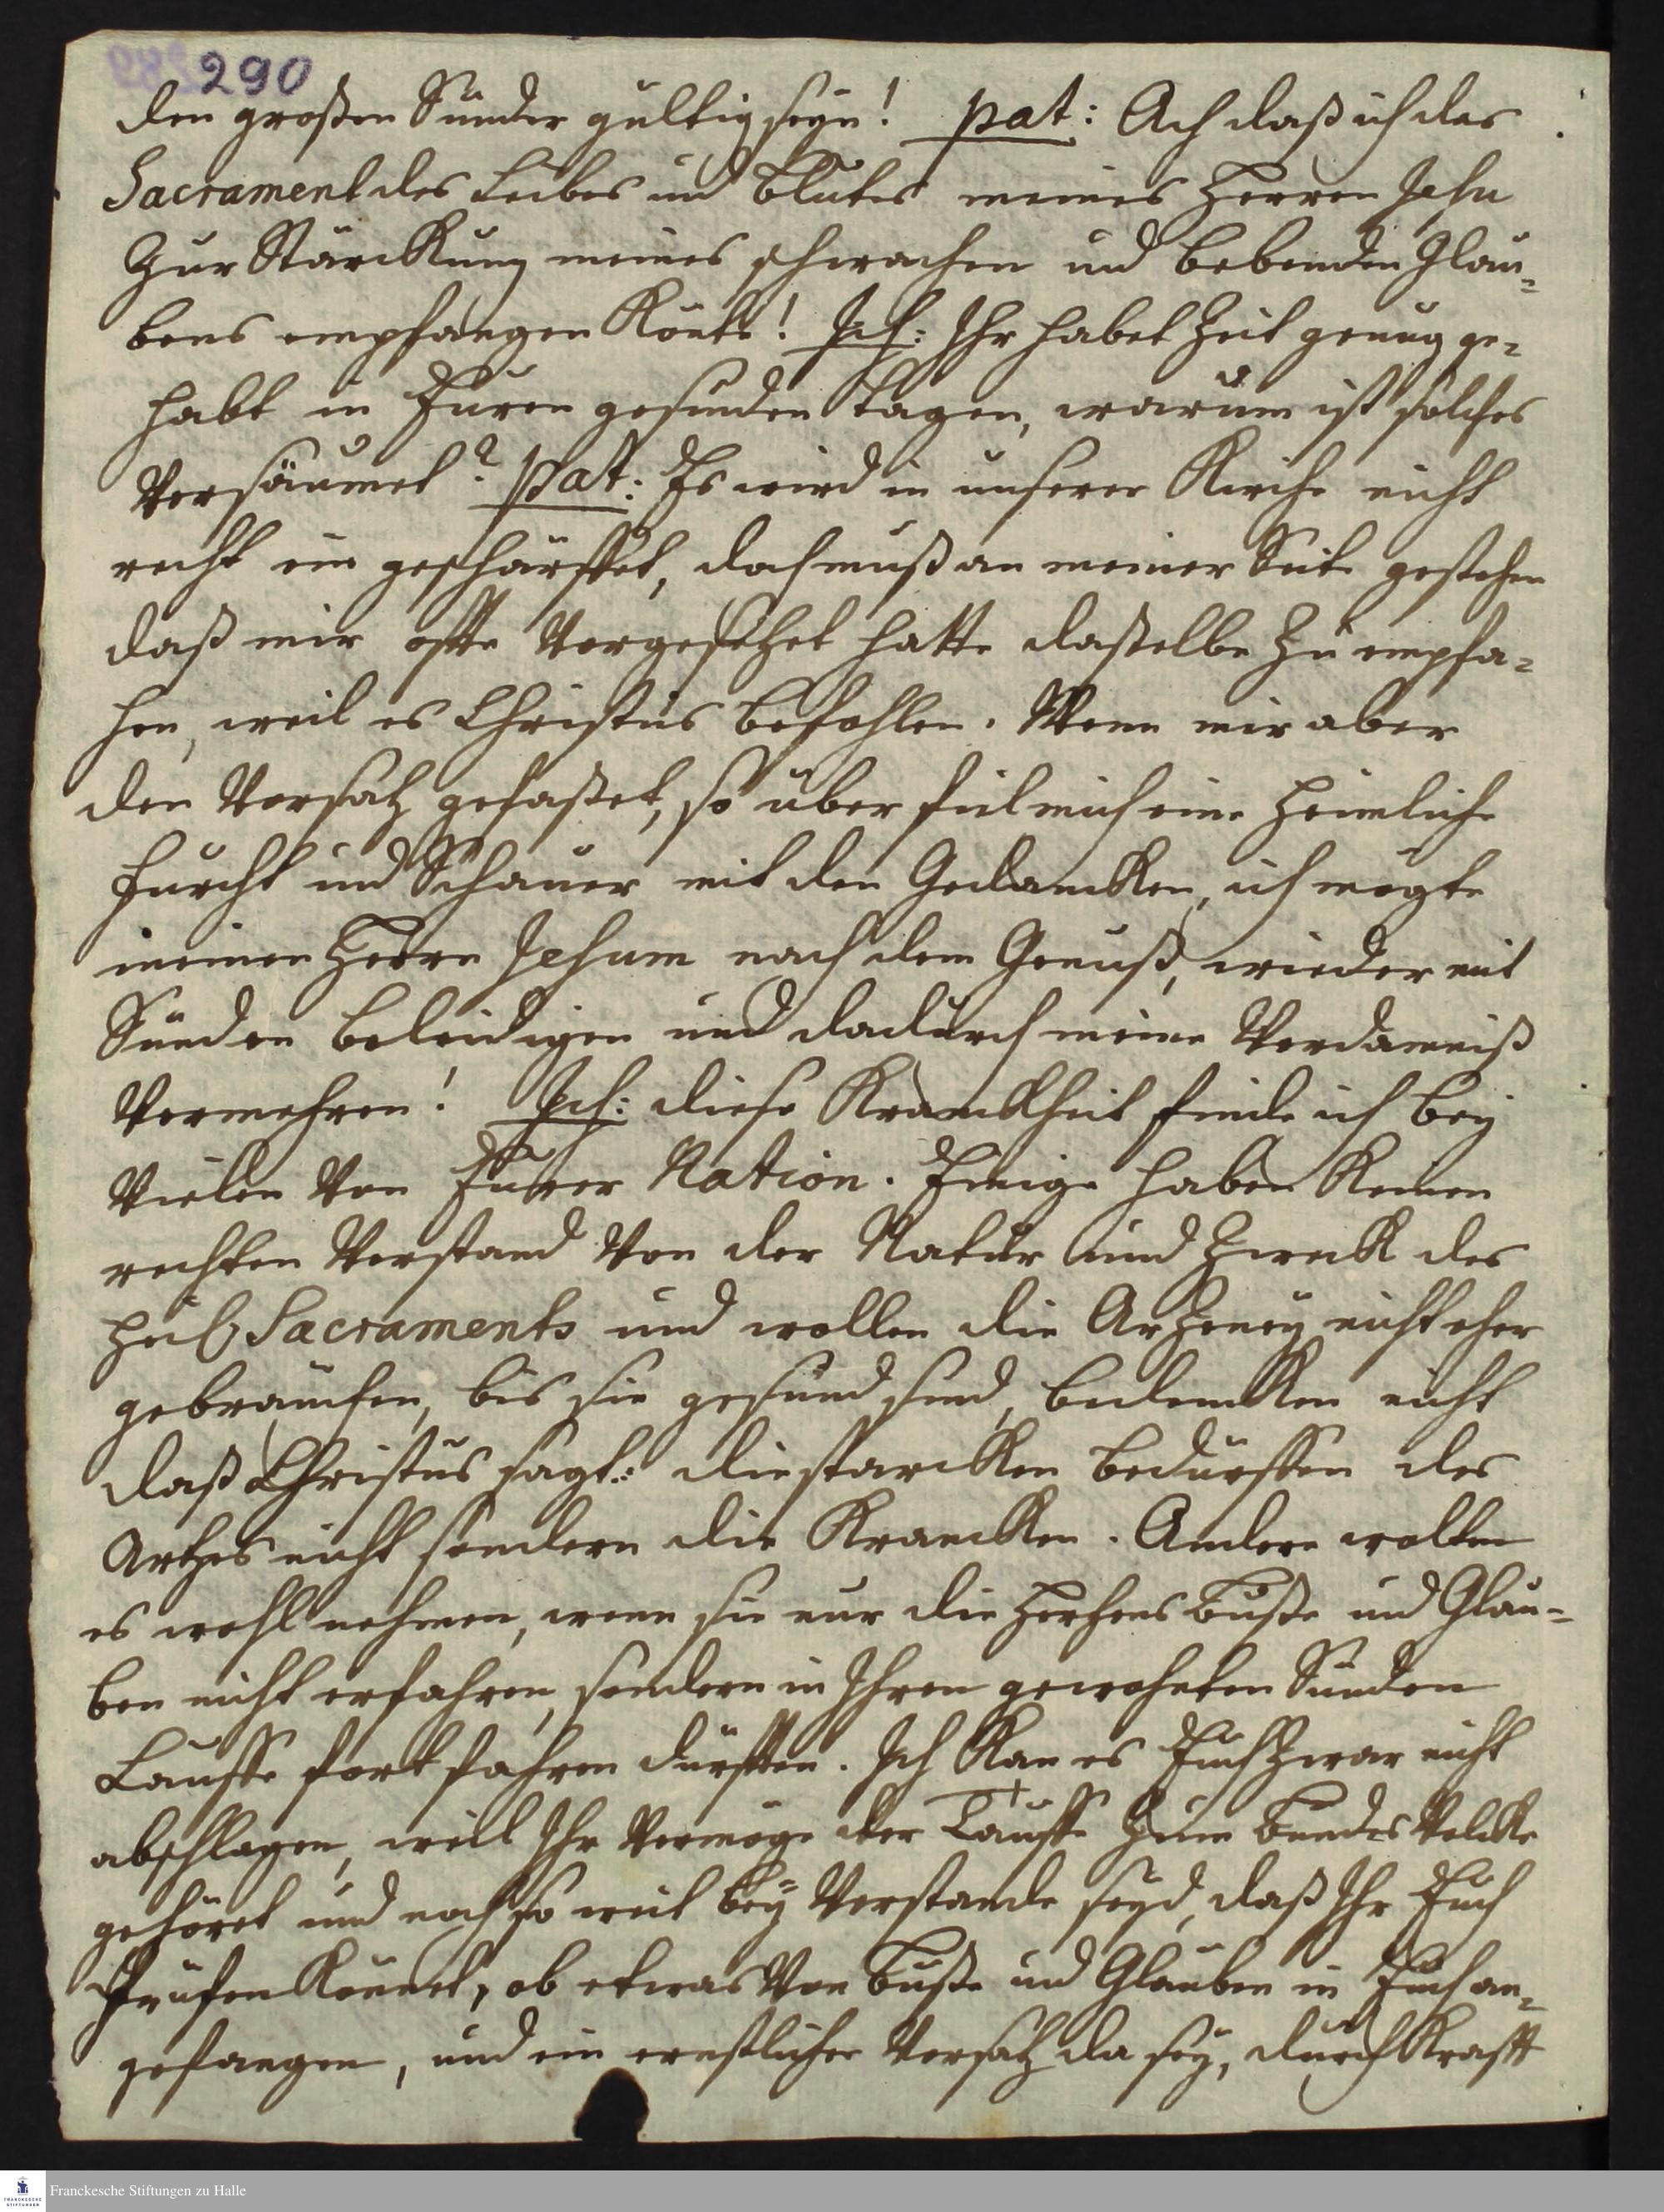 290
den großen Sünder gültig seyn! pat: Ach daß ich das
Sacrament des Leibes und Blutes meines Herren Jesu
Zur Stärckung meines schwachen und bebenden Glau-
bens empfangen Könte! Ich: Ihr habet Zeit genug ge-
habt in Euren gesunden Tagen, warum ist solches
Versäumet? pat: Es wird in unserer Kirche nicht
recht ein geschärffet, doch muß an meiner Seite gestehen
daß mir offte Vorgesetzet hatte dasselbe zu empfa-
hen, weil es Christus befohlen. Wenn mir aber
den Vorsatz gefasset, so über fiel mich eine Heimliche
Furcht und Schauer mit den Gedancken, ich mögte
meinen Herrn Jesum nach dem Genuß, wieder mit
Sünden beleidigen und dadurch meine Verdamniß
Vermehren! Ich: diese Kranckheit finde ich bey
Vielen Von Eurer Nation. Einige haben Keinen
rechten Verstand Von der Natur und Zweck des
Heil Sacraments und wollen die Arzeney nicht eher
gebrauchen, bis sie gesund sind, bedencken nicht
daß Christus sagt: die starcken bedürffen des
Artzes nicht sondern die Krancken. Andere wolten
es wohl nehmen, wenn sie nur die Hertzens Buße und Glau-
ben nicht erfahren, sondern in Ihren gewohnten Sünden
Lauffe fort fahren dürfften. Ich Kan es Euch Zwar nicht
abschlagen, weil Ihr Vermöge der Tauffe Zum Bundes Volcke
gehöret und noch so weit bey Verstande seyd, daß Ihr Euch
Prüfen Könnet, ob etwas Von Buße und Glauben in Euch an-
gefangen, und ein ernstlicher Vorsatz da sey, durch Krafft
Franckesche Stiftungen zu Halle
FRANCKESCHE
STIFTUNGEN